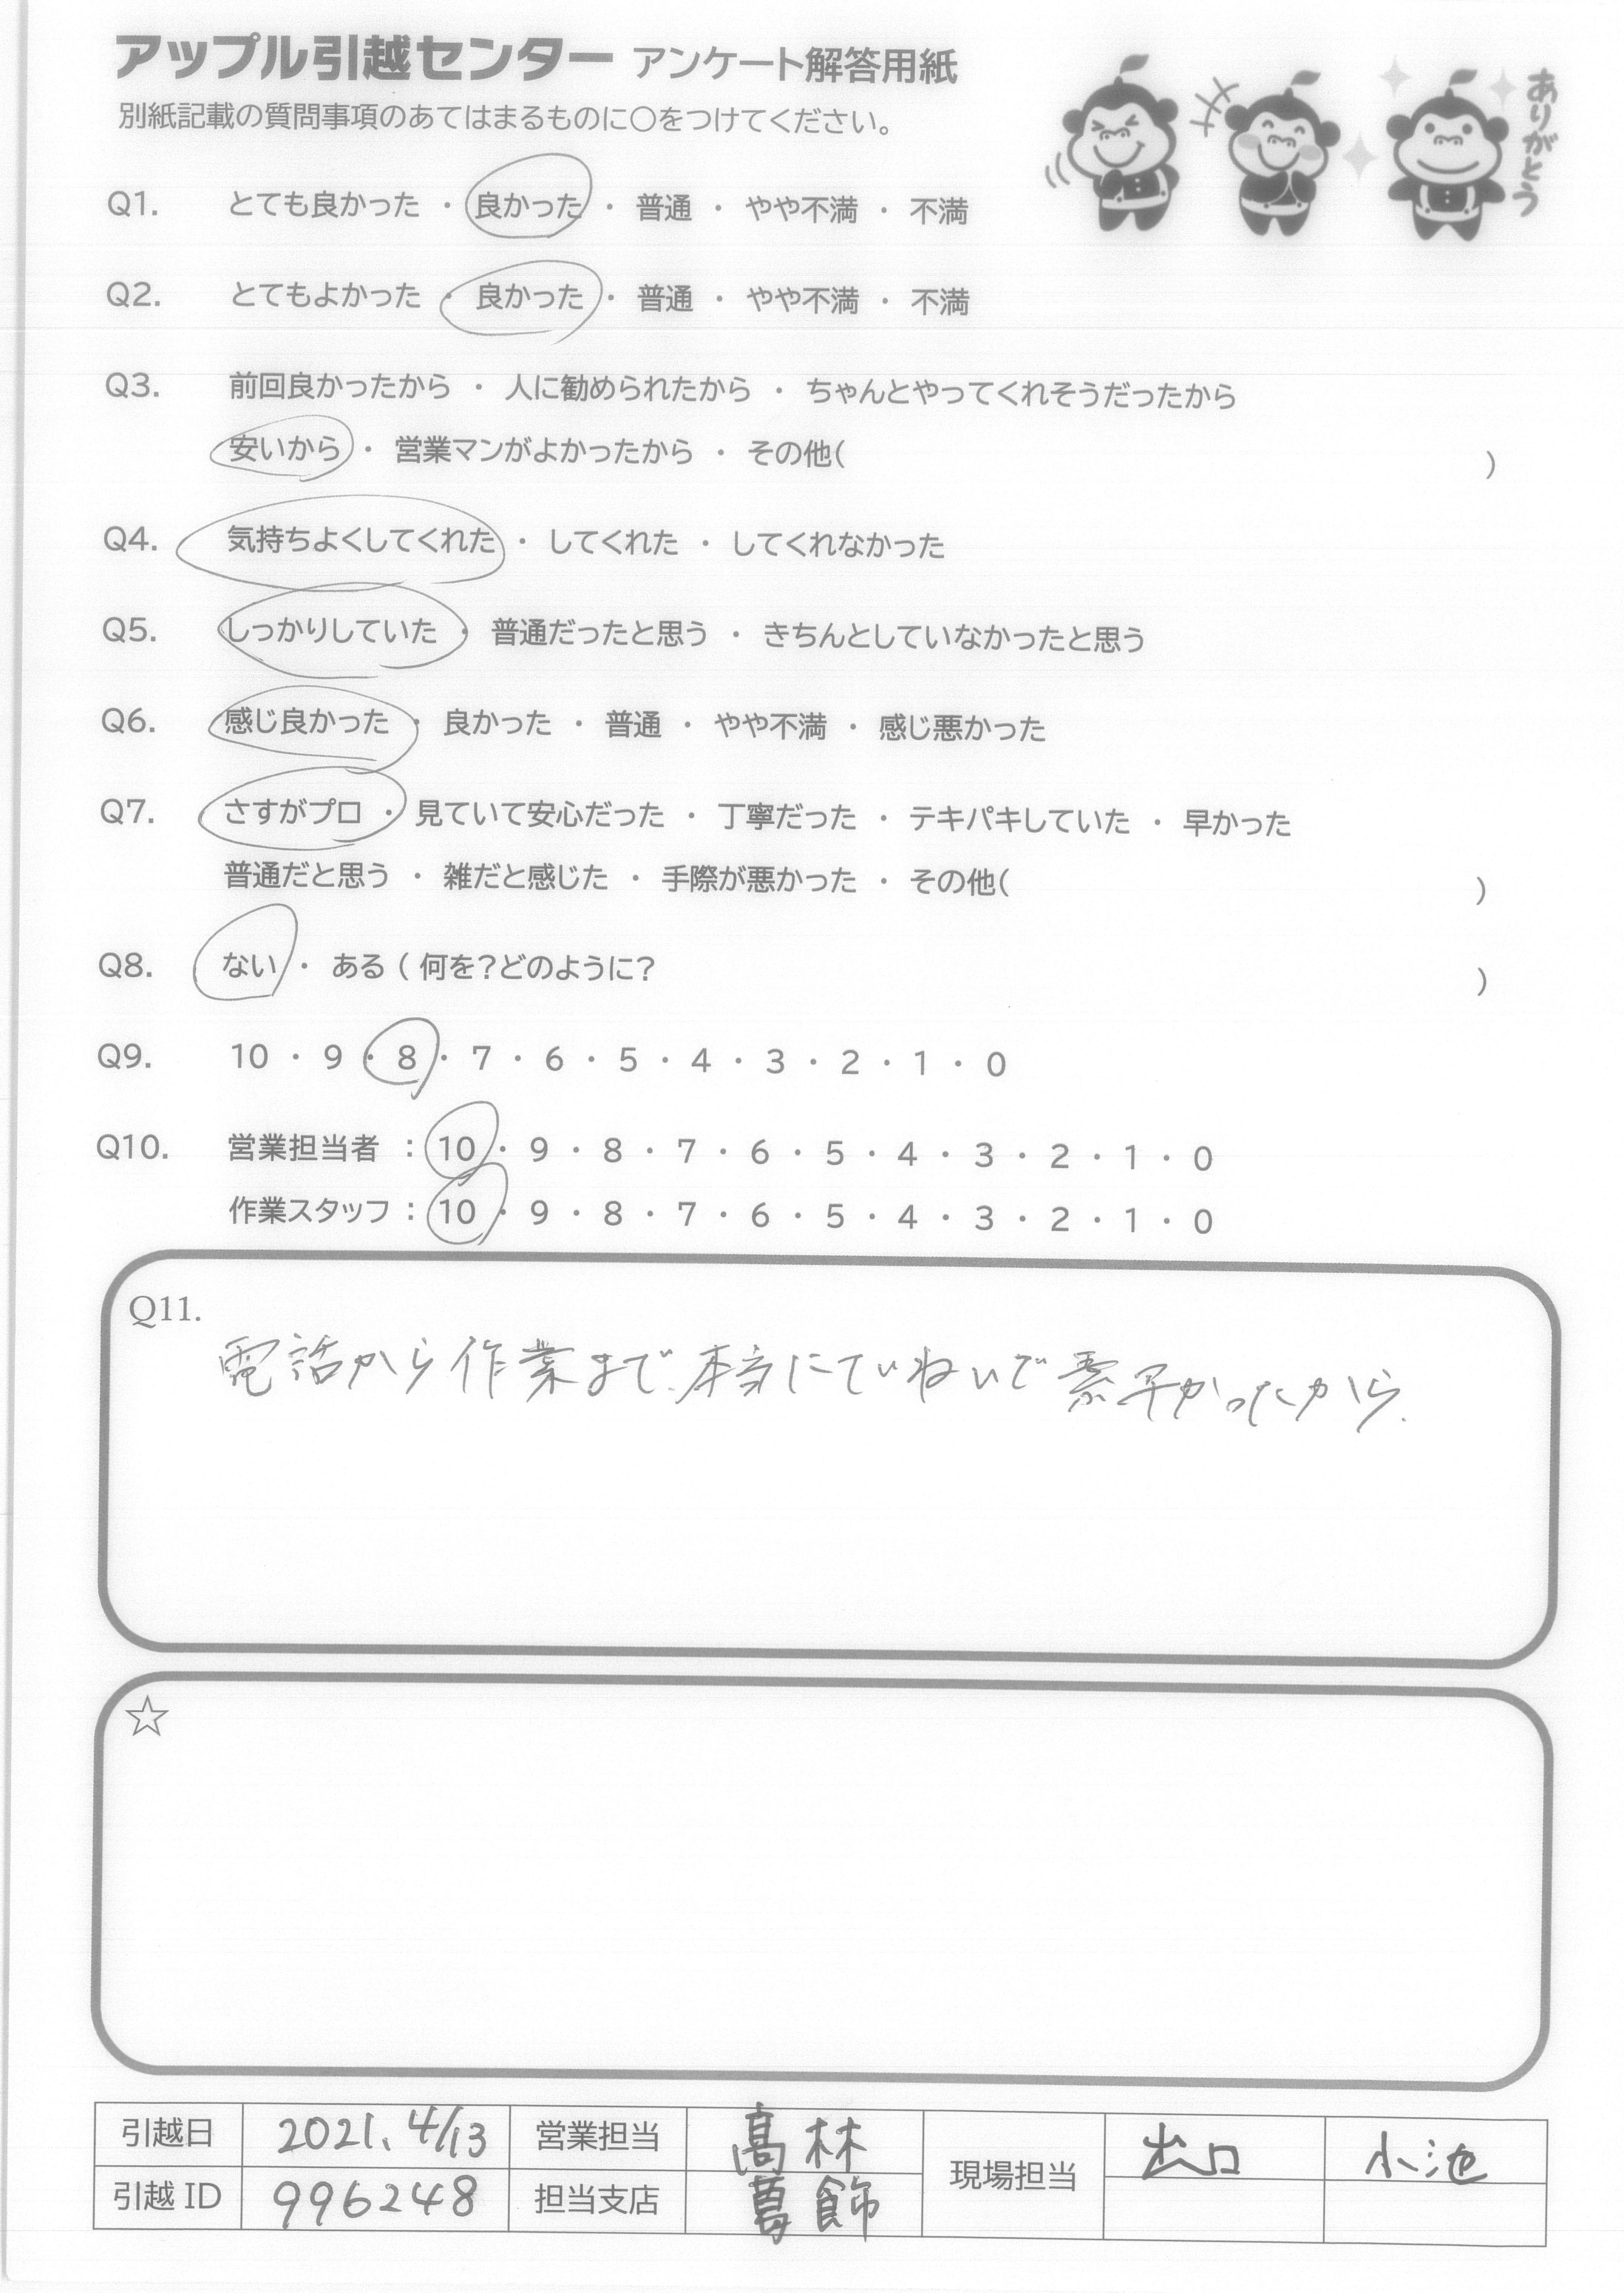 アップル引越センター アンケート解答用紙
別紙記載の質問事項のあてはまるものに○をつけてください。
ありがとう
Q1. とても良かった ・ 良かった ・ 普通 ・ やや不満 ・ 不満
Q2. とてもよかった ・ 良かった ・ 普通 ・ やや不満 ・ 不満
Q3. 前回良かったから ・ 人に勧められたから ・ ちゃんとやってくれそうだったから
安いから ・ 営業マンがよかったから ・ その他( )
Q4. 気持ちよくしてくれた ・ してくれた ・ してくれなかった
Q5. しっかりしていた ・ 普通だったと思う ・ きちんとしていなかったと思う
Q6. 感じ良かった ・ 良かった ・ 普通 ・ やや不満 ・ 感じ悪かった
Q7. さすがプロ ・ 見ていて安心だった ・ 丁寧だった ・ テキパキしていた ・ 早かった
普通だと思う ・ 雑だと感じた ・ 手際が悪かった ・ その他( )
Q8. ない ・ ある ( 何を?どのように? )
Q9. 10 ・ 9 ・ 8 ・ 7 ・ 6 ・ 5 ・ 4 ・ 3 ・ 2 ・ 1 ・ 0
Q10. 営業担当者 : 10 ・ 9 ・ 8 ・ 7 ・ 6 ・ 5 ・ 4 ・ 3 ・ 2 ・ 1 ・ 0
作業スタッフ : 10 ・ 9 ・ 8 ・ 7 ・ 6 ・ 5 ・ 4 ・ 3 ・ 2 ・ 1 ・ 0
Q11.
電話から作業まで、本当にていねいで かったから.
☆
引越日 2021.4/13 営業担当 髙林 現場担当 出口 小池
引越 ID 996248 担当支店 葛飾